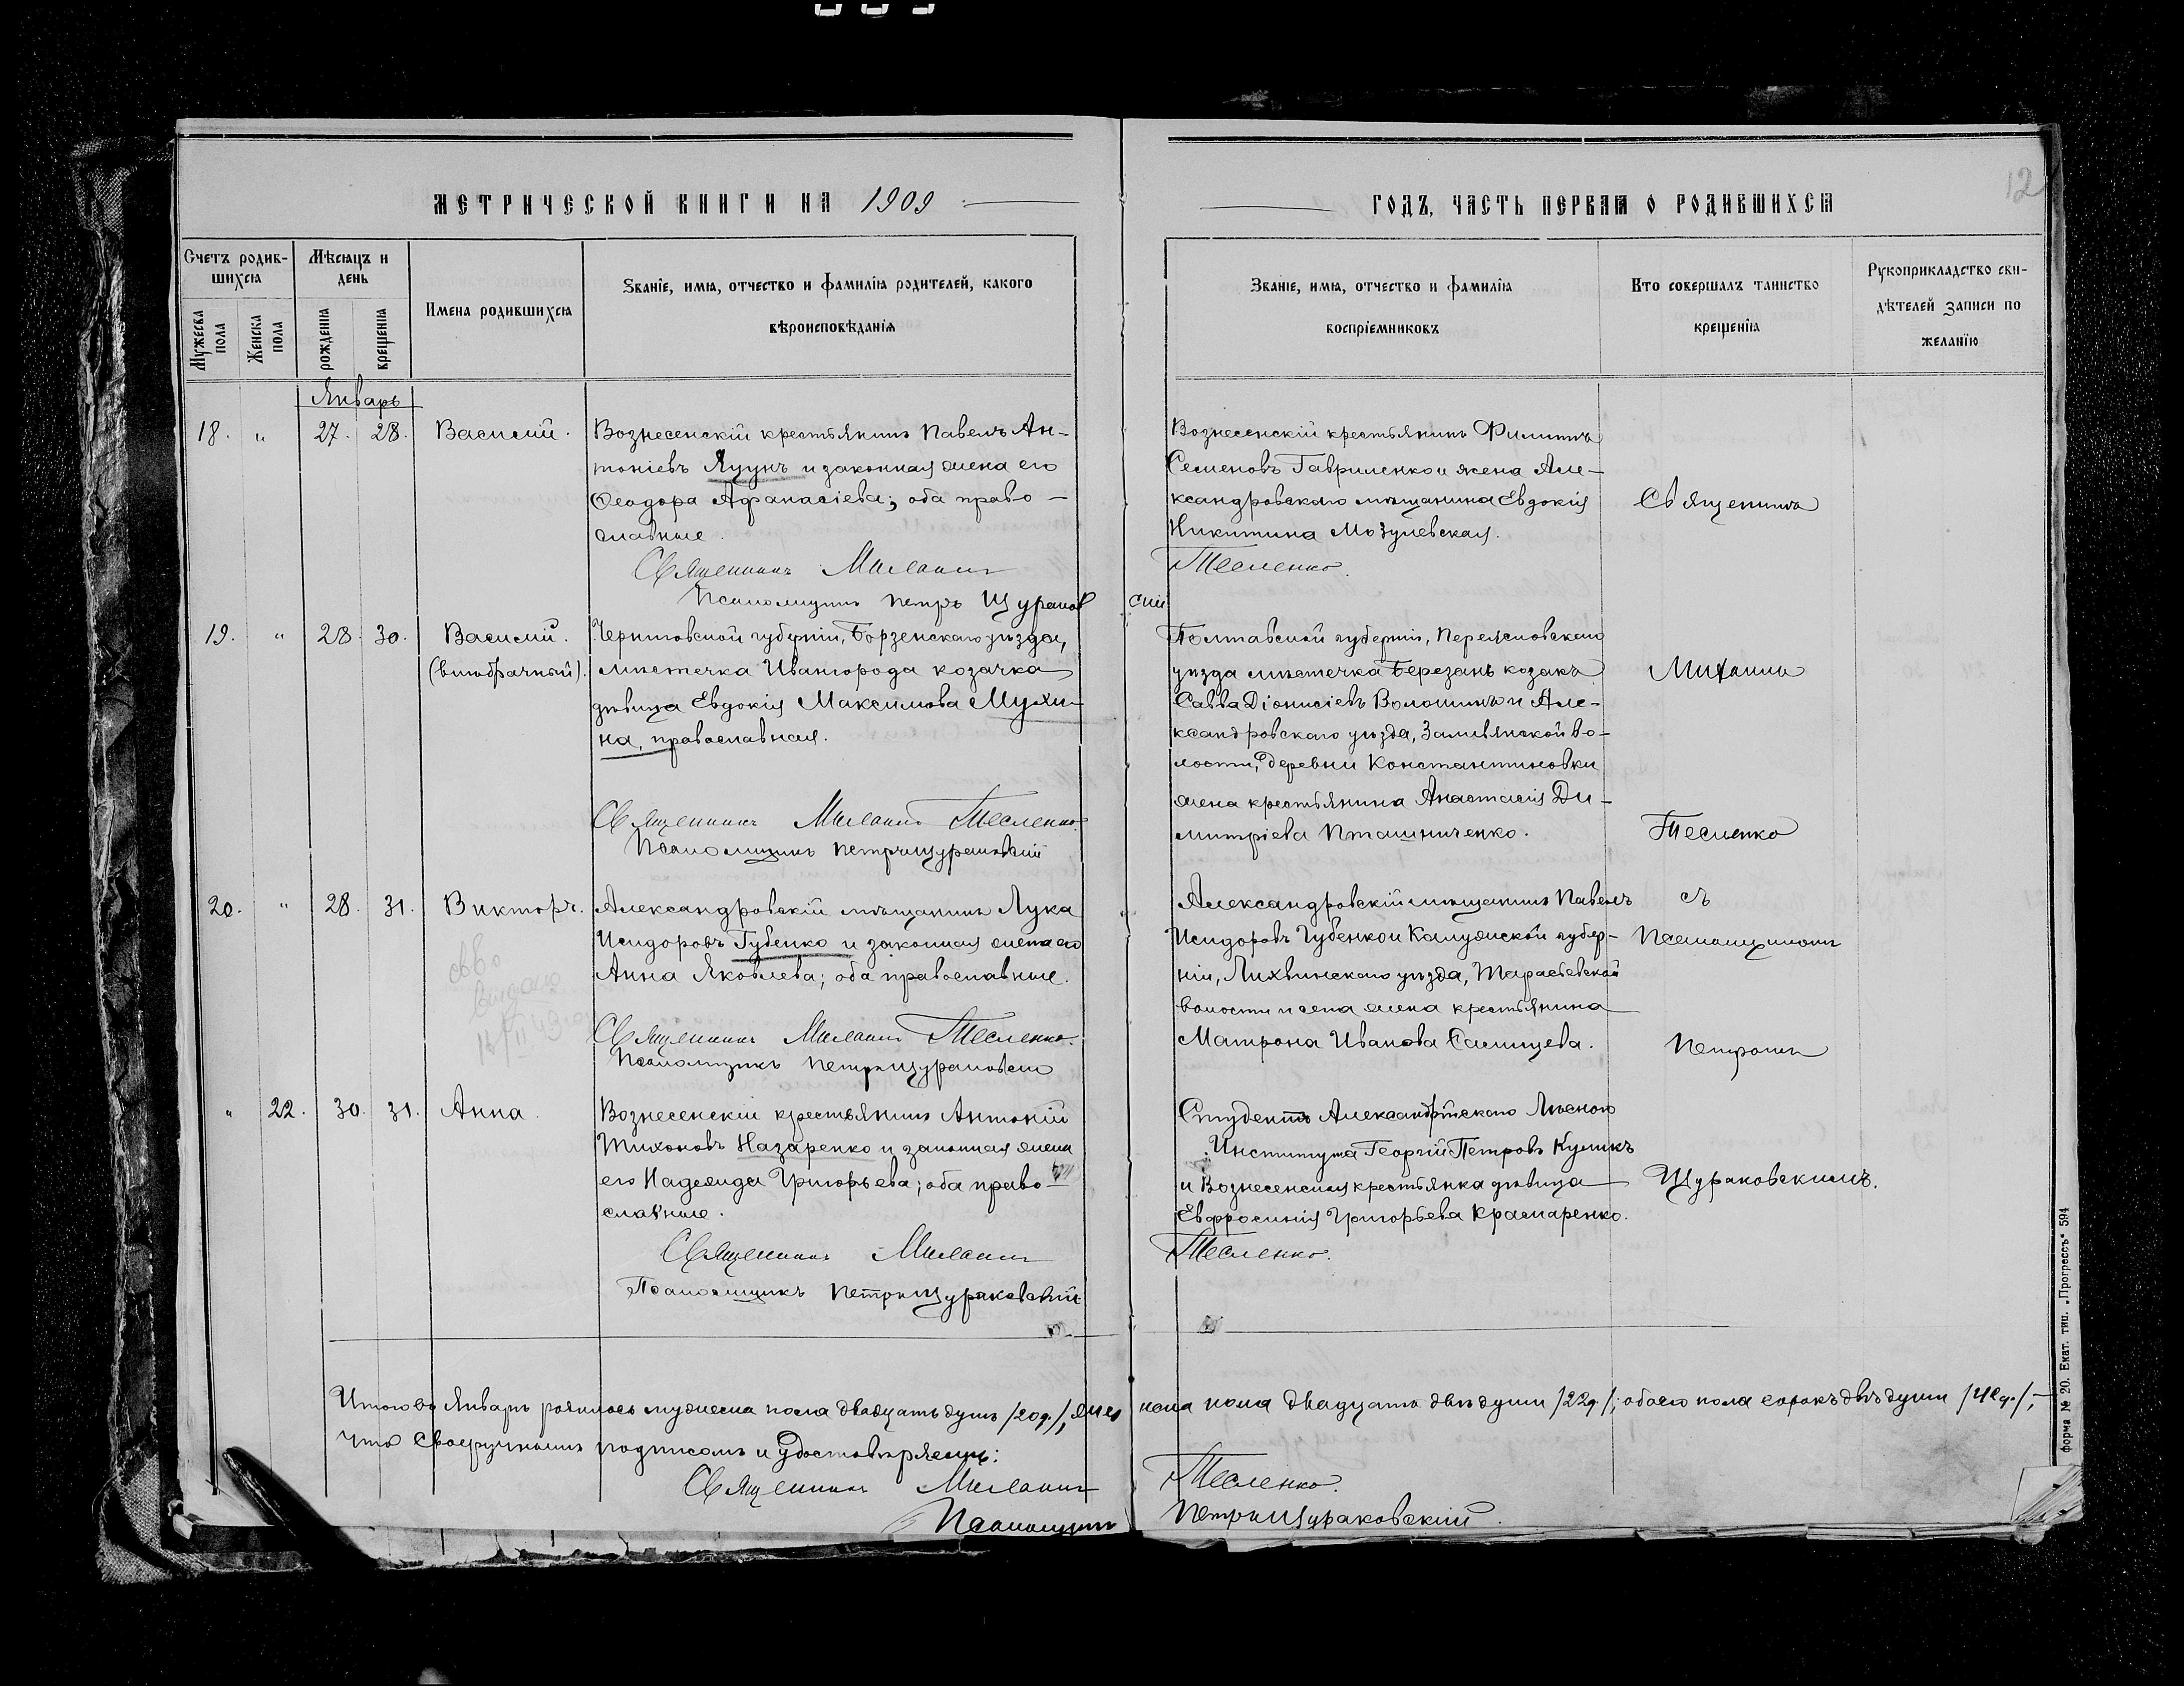 МЕТРИЧЕСКОЙ КНИГИ НА 1909
ГОДЪ, ЧАСТЬ ПЕРВАЯ О РОДИВШИХСЯ
12
Счетъ родив-
шихся
Мѣсяцъ и
день
Мужеска
пола
Женска
пола
рожденія
крещенія
Имена родившихся
Званіе, имя, отчество и фамилія родителей, какого
вѣроисповѣданія
Званіе, имя, отчество и фамилія
воспріемниковъ
Кто совершалъ таинство
крещенія
Рукоприкладство сви-
дѣтелей записи по
желанію
Январь
18. " 27. 28. Василий.
Вознесенскій крестьянинъ Павелъ Ан-
тоніевъ Яцунъ и законная жена его
Ѳеодора Афанасіева; оба право-
славные.
Священникъ Михаилъ Тесленко.
Псаломщикъ Петръ Щураковскій
Вознесенскій крестьянинъ Филиппъ
Семеновъ Гавриленко и жена Але-
ксандровскаго мѣщанина Евдокія
Никитина Мозулевская.
Священникъ
19. " 28. 30. Василий.
(внѣбрачный).
Черниговской губерніи, Борзенскаго уѣзда,
мѣстечка Ивангорода козачка
дѣвица Евдокія Максимова Мухи-
на, православная.
Священникъ Михаилъ Тесленко.
Псаломщикъ Петръ Щураковскій
Полтавской губерніи, Переясловскаго
уѣзда мѣстечка Березань козакъ
Савва Діонисіевъ Волошинъ и Але-
ксандровскаго уѣзда, во-
лости, деревни Константиновки
жена крестьянина Анастасія Ди-
митріева Пташниченко.
Михаилъ
Тесленко
20. " 28. 31. Викторъ.
Александровскій мѣщанинъ Лука
Исидоровъ Губенко и законная жена его
Анна Яковлева; оба православные.
Священникъ Михаилъ Тесленко.
Псаломщикъ Петръ Щураковскій
Александровскій мѣщанинъ Павелъ
Исидоровъ Губенко и Калужской губер-
ніи, Лихвинскаго уѣзда,
волости и села жена крестьянина
Матрона Иванова
съ
Псаломщикомъ
Петромъ
" 22. 30. 31. Анна.
Вознесенскій крестьянинъ Антоній
Тихоновъ Назаренко и законная жена
его Надежда Григорьева; оба право-
славные.
Священникъ Михаилъ Тесленко.
Псаломщикъ Петръ Щураковскій
Студентъ Лѣсного
Института Георгій Петровъ Куликъ
и Вознесенская крестьянка дѣвица
Евфросинія Григорьева Крамаренко.
Щураковскимъ.
Итого въ Январѣ родилось мужеска пола двадцать душъ /20 д./, женска пола двадцать двѣ души /22 д./; обоего пола сорокъ двѣ души /42 д./,
что своеручнымъ подписомъ и удостовѣряемъ:
Священникъ Михаилъ Тесленко.
Псаломщикъ Петръ Щураковскій.
форма № 20. Екат. тип. „Прогрессъ“ 594